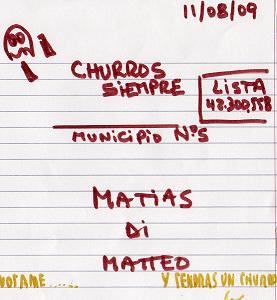 11/08/09
CHURROS
SIEMPRE
LISTA
42.300,558
MUNICIPIO Nº5
MATIAS
DI
MATTEO
VOTAME...... Y TENDRAS UN CHURRO